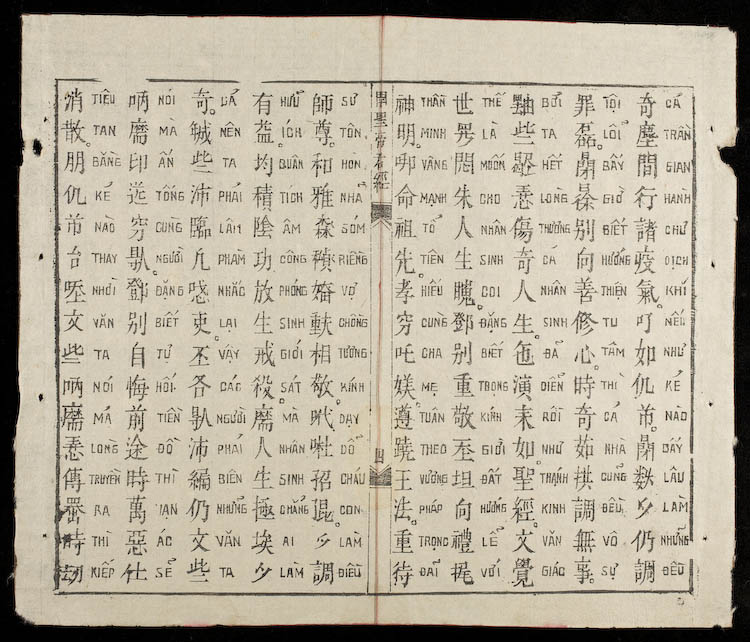 奇塵間行諸疫氣。吖如仉芇。閉数𫜵仍調
CẢ TRẦN GIAN HÀNH CHƯ DỊCH KHÍ NẾU NHƯ KẺ NÀO ĐẤY LÂU LÀM NHỮNG ĐỀU
罪磊。閉𣇞別向善修心。時奇茹拱調無事。
TỘI LỖI BẤY GIỜ BIẾT HƯỚNG THIỆN TU TÂM THÌ CẢ NHÀ CŨNG ĐỀU VÔ SỰ.
些歇𢚸傷奇人生。㐌演耒如聖經。文覺
BỞI TA HẾT LÒNG THƯƠNG CẢ NHÂN SINH ĐÃ DIỄN RỒI NHƯ THÁNH KINH VĂN GIÁC
世𱺵悶朱人生䁛。鄧別重敬𡗶坦向禮𢭲
THẾ LÀ MUỐN CHO NHÂN SINH COI ĐẶNG BIẾT TRỌNG KÍNH GIỜI ĐẤT HƯỚNG LỄ VỚI
神明。𠳹命祖先。孝穷吒媄。遵蹺王法。重待
THẦN MINH VÂNG MẠNH TỔ TIÊN HIẾU CÙNG CHA MẸ TUÂN THEO VƯƠNG PHÁP TRỌNG ĐÃI
明聖帝君經
四
師尊。和雅森𥢆。婦𫯰相敬。𠰺𠹌招琨。𫜵調
SƯ TÔN, HÒA NHÃ SỚM RIÊNG VỢ CHỒNG TƯƠNG KÍNH DẠY DỖ CHÁU CON LÀM ĐIỀU
有益。均積陰功放生戒殺。𦓡人生極埃𫜵
HỮU ÍCH, BUÂN TÍCH ÂM CÔNG PHÓNG SINH GIỚI SÁT. MÀ NHÂN SINH CHẲNG AI LÀM
奇。𢧚些沛臨凡吏。丕各𠊛沛編仍文些
CẢ NÊN TA PHẢI LÂM PHÀM NHẮC LẠI VẬY CÁC NGƯỜI PHẢI BIÊN NHỮNG VĂN TA
吶𦓡印送穷𠊛。鄧別自悔前途時萬惡仕
NÓI MÀ ẤN TỐNG CÙNG NGƯỜI ĐẶNG BIẾT TỰ HỐI TIỀN ĐỒ THÌ VẠN ÁC SẼ
消散。朋仉芇台文些吶𦓡𢚸傳𠚢時刼
TIÊU TAN BẰNG KẺ NÀO THAY NHỜI VĂN TA NÓI MÁ LÒNG TRUYỀN RA THÌ KIẾP